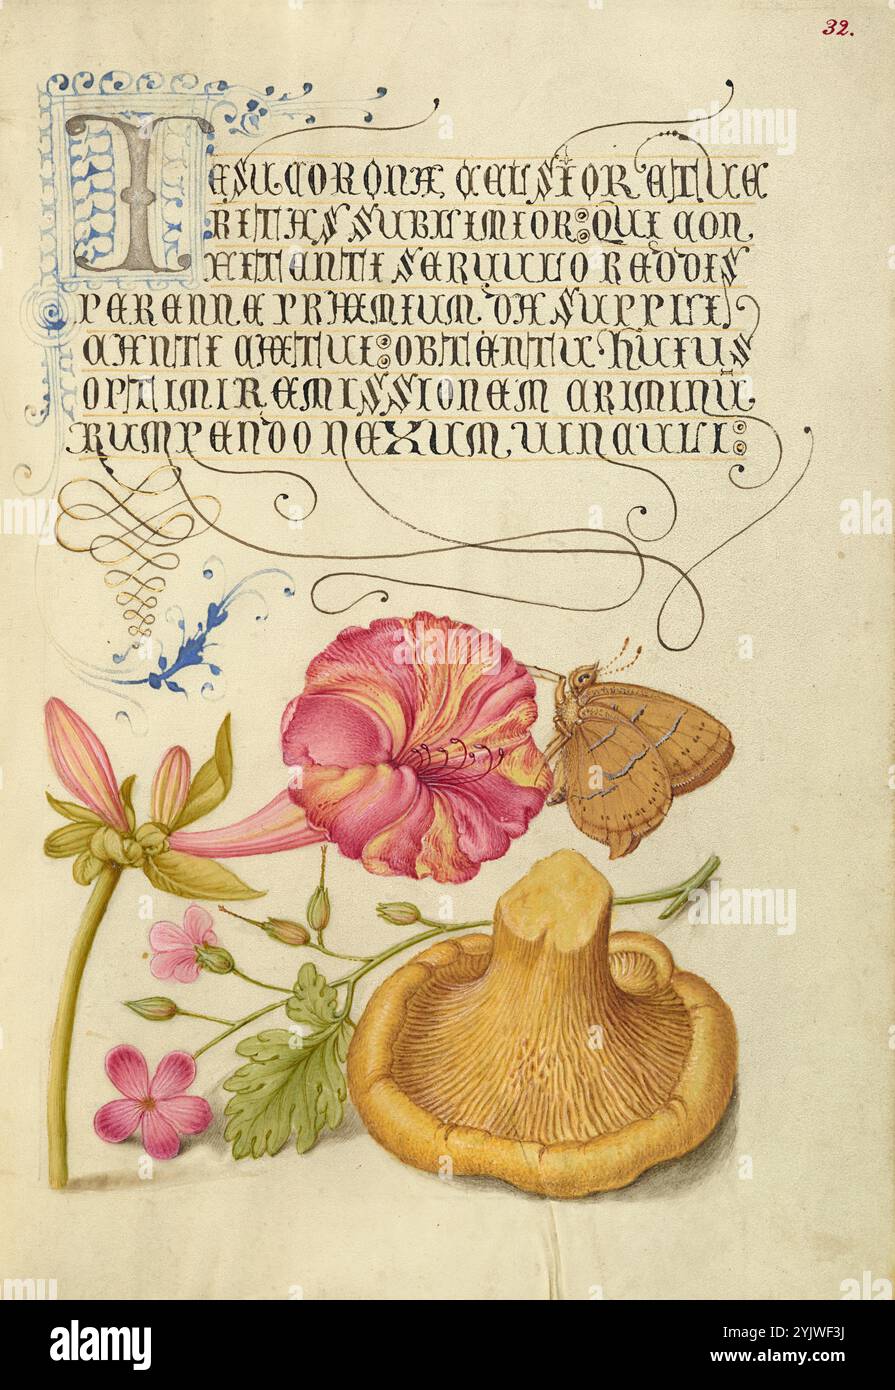 32.
IESU CORONA CELSIOR ET VE
RITAS SUBLIMIOR: QUI CON
FITENTI SERVULO REDDIS
PERENNE PRÆMIUM. DA SUPPLI
CANTI CÆTUI: OBTENTU HUIUS
OPTIMI REMISSIONEM CRIMINŪ
RUMPENDO NEXUM VINCULI:
alamy
Image ID: 2YJWF3J
www.alamy.com